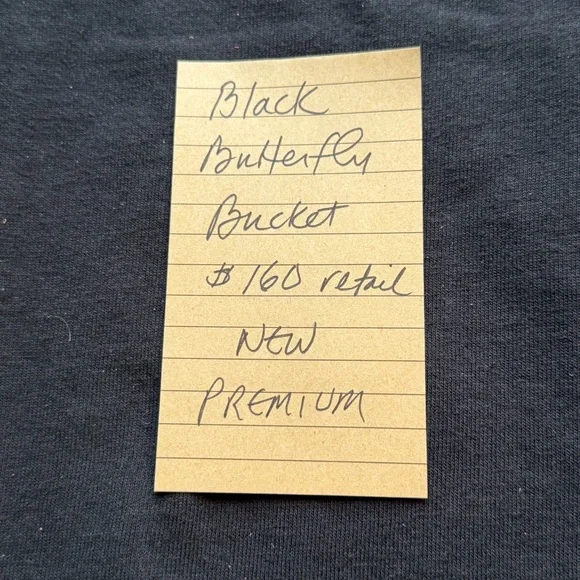 Black
Butterfly
Bucket
$160 retail
NEW
PREMIUM